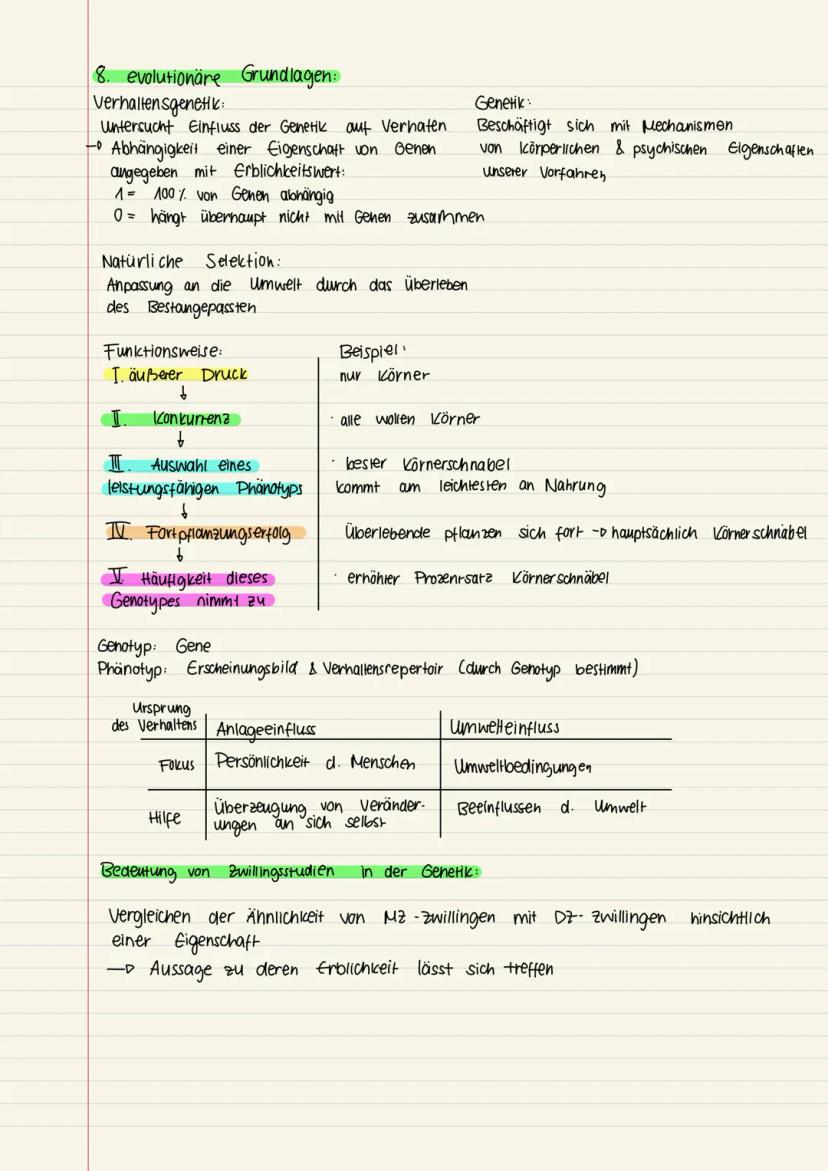 8. evolutionäre Grundlagen:
Verhaltensgenetik:
Untersucht Einfluss der Genetik auf Verhaten
→ Abhängigkeit einer Eigenschaft von Genen
angegeben mit Erblichkeitswert:
1 = 100% von Genen abhängig
0 = hängt überhaupt nicht mit Genen zusammen
Genetik:
Beschäftigt sich mit Mechanismen
von körperlichen & psychischen Eigenschaften
unserer Vorfahren
Natürliche Selektion:
Anpassung an die Umwelt durch das Überleben
des Bestangepassten
Funktionsweise: Beispiel:
I. äußerer Druck nur Körner
↓
II. Konkurrenz · alle wollen Körner
↓
III. Auswahl eines · bester Körnerschnabel
leistungsfähigen Phänotyps kommt am leichtesten an Nahrung
↓
IV. Fortpflanzungserfolg Überlebende pflanzen sich fort → hauptsächlich Körnerschnabel
↓
V. Häufigkeit dieses · erhöhter Prozentsatz Körnerschnäbel
Genotypes nimmt zu
Genotyp: Gene
Phänotyp: Erscheinungsbild & Verhaltensrepertoir (durch Genotyp bestimmt)
Ursprung
des Verhaltens Anlageeinfluss Umwelteinfluss
Fokus Persönlichkeit d. Menschen Umweltbedingungen
Hilfe Überzeugung von Veränder- Beeinflussen d. Umwelt
ungen an sich selbst
Bedeutung von Zwillingsstudien in der Genetik:
Vergleichen der Ähnlichkeit von MZ-Zwillingen mit DZ-Zwillingen hinsichtlich
einer Eigenschaft
→ Aussage zu deren Erblichkeit lässt sich treffen